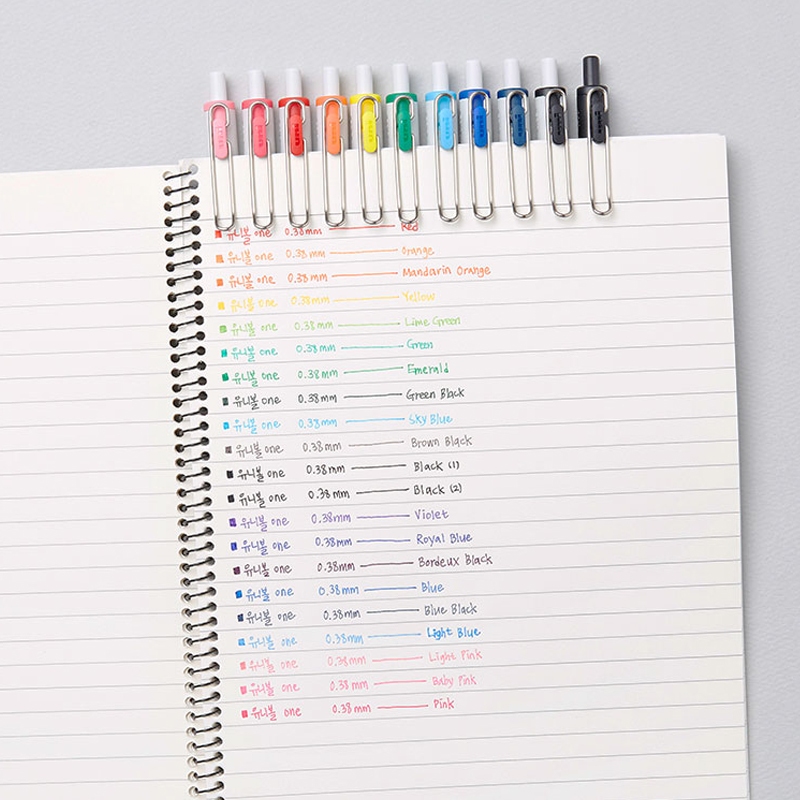 유니볼 one 0.38mm Red
유니볼 one 0.38mm Orange
유니볼 one 0.38mm Mandarin Orange
유니볼 one 0.38mm Yellow
유니볼 one 0.38mm Lime Green
유니볼 one 0.38mm Green
유니볼 one 0.38mm Emerald
유니볼 one 0.38mm Green Black
유니볼 one 0.38mm Sky Blue
유니볼 one 0.38mm Brown Black
유니볼 one 0.38mm Black (1)
유니볼 one 0.38mm Black (2)
유니볼 one 0.38mm Violet
유니볼 one 0.38mm Royal Blue
유니볼 one 0.38mm Bordeux Black
유니볼 one 0.38mm Blue
유니볼 one 0.38mm Blue Black
유니볼 one 0.38mm Light Blue
유니볼 one 0.38mm Light Pink
유니볼 one 0.38mm Baby Pink
유니볼 one 0.38mm Pink